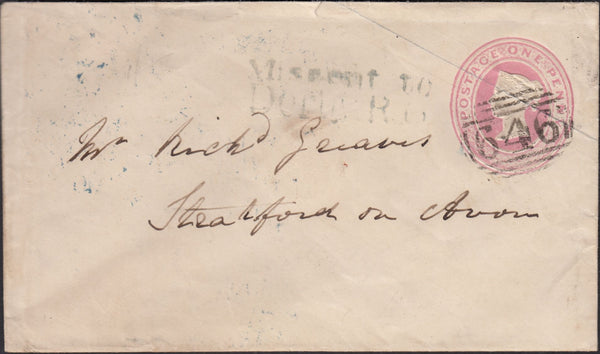 POSTAGE ONE PENNY
Missent to
646
Mr Richd Greaves
Stratford on Avon